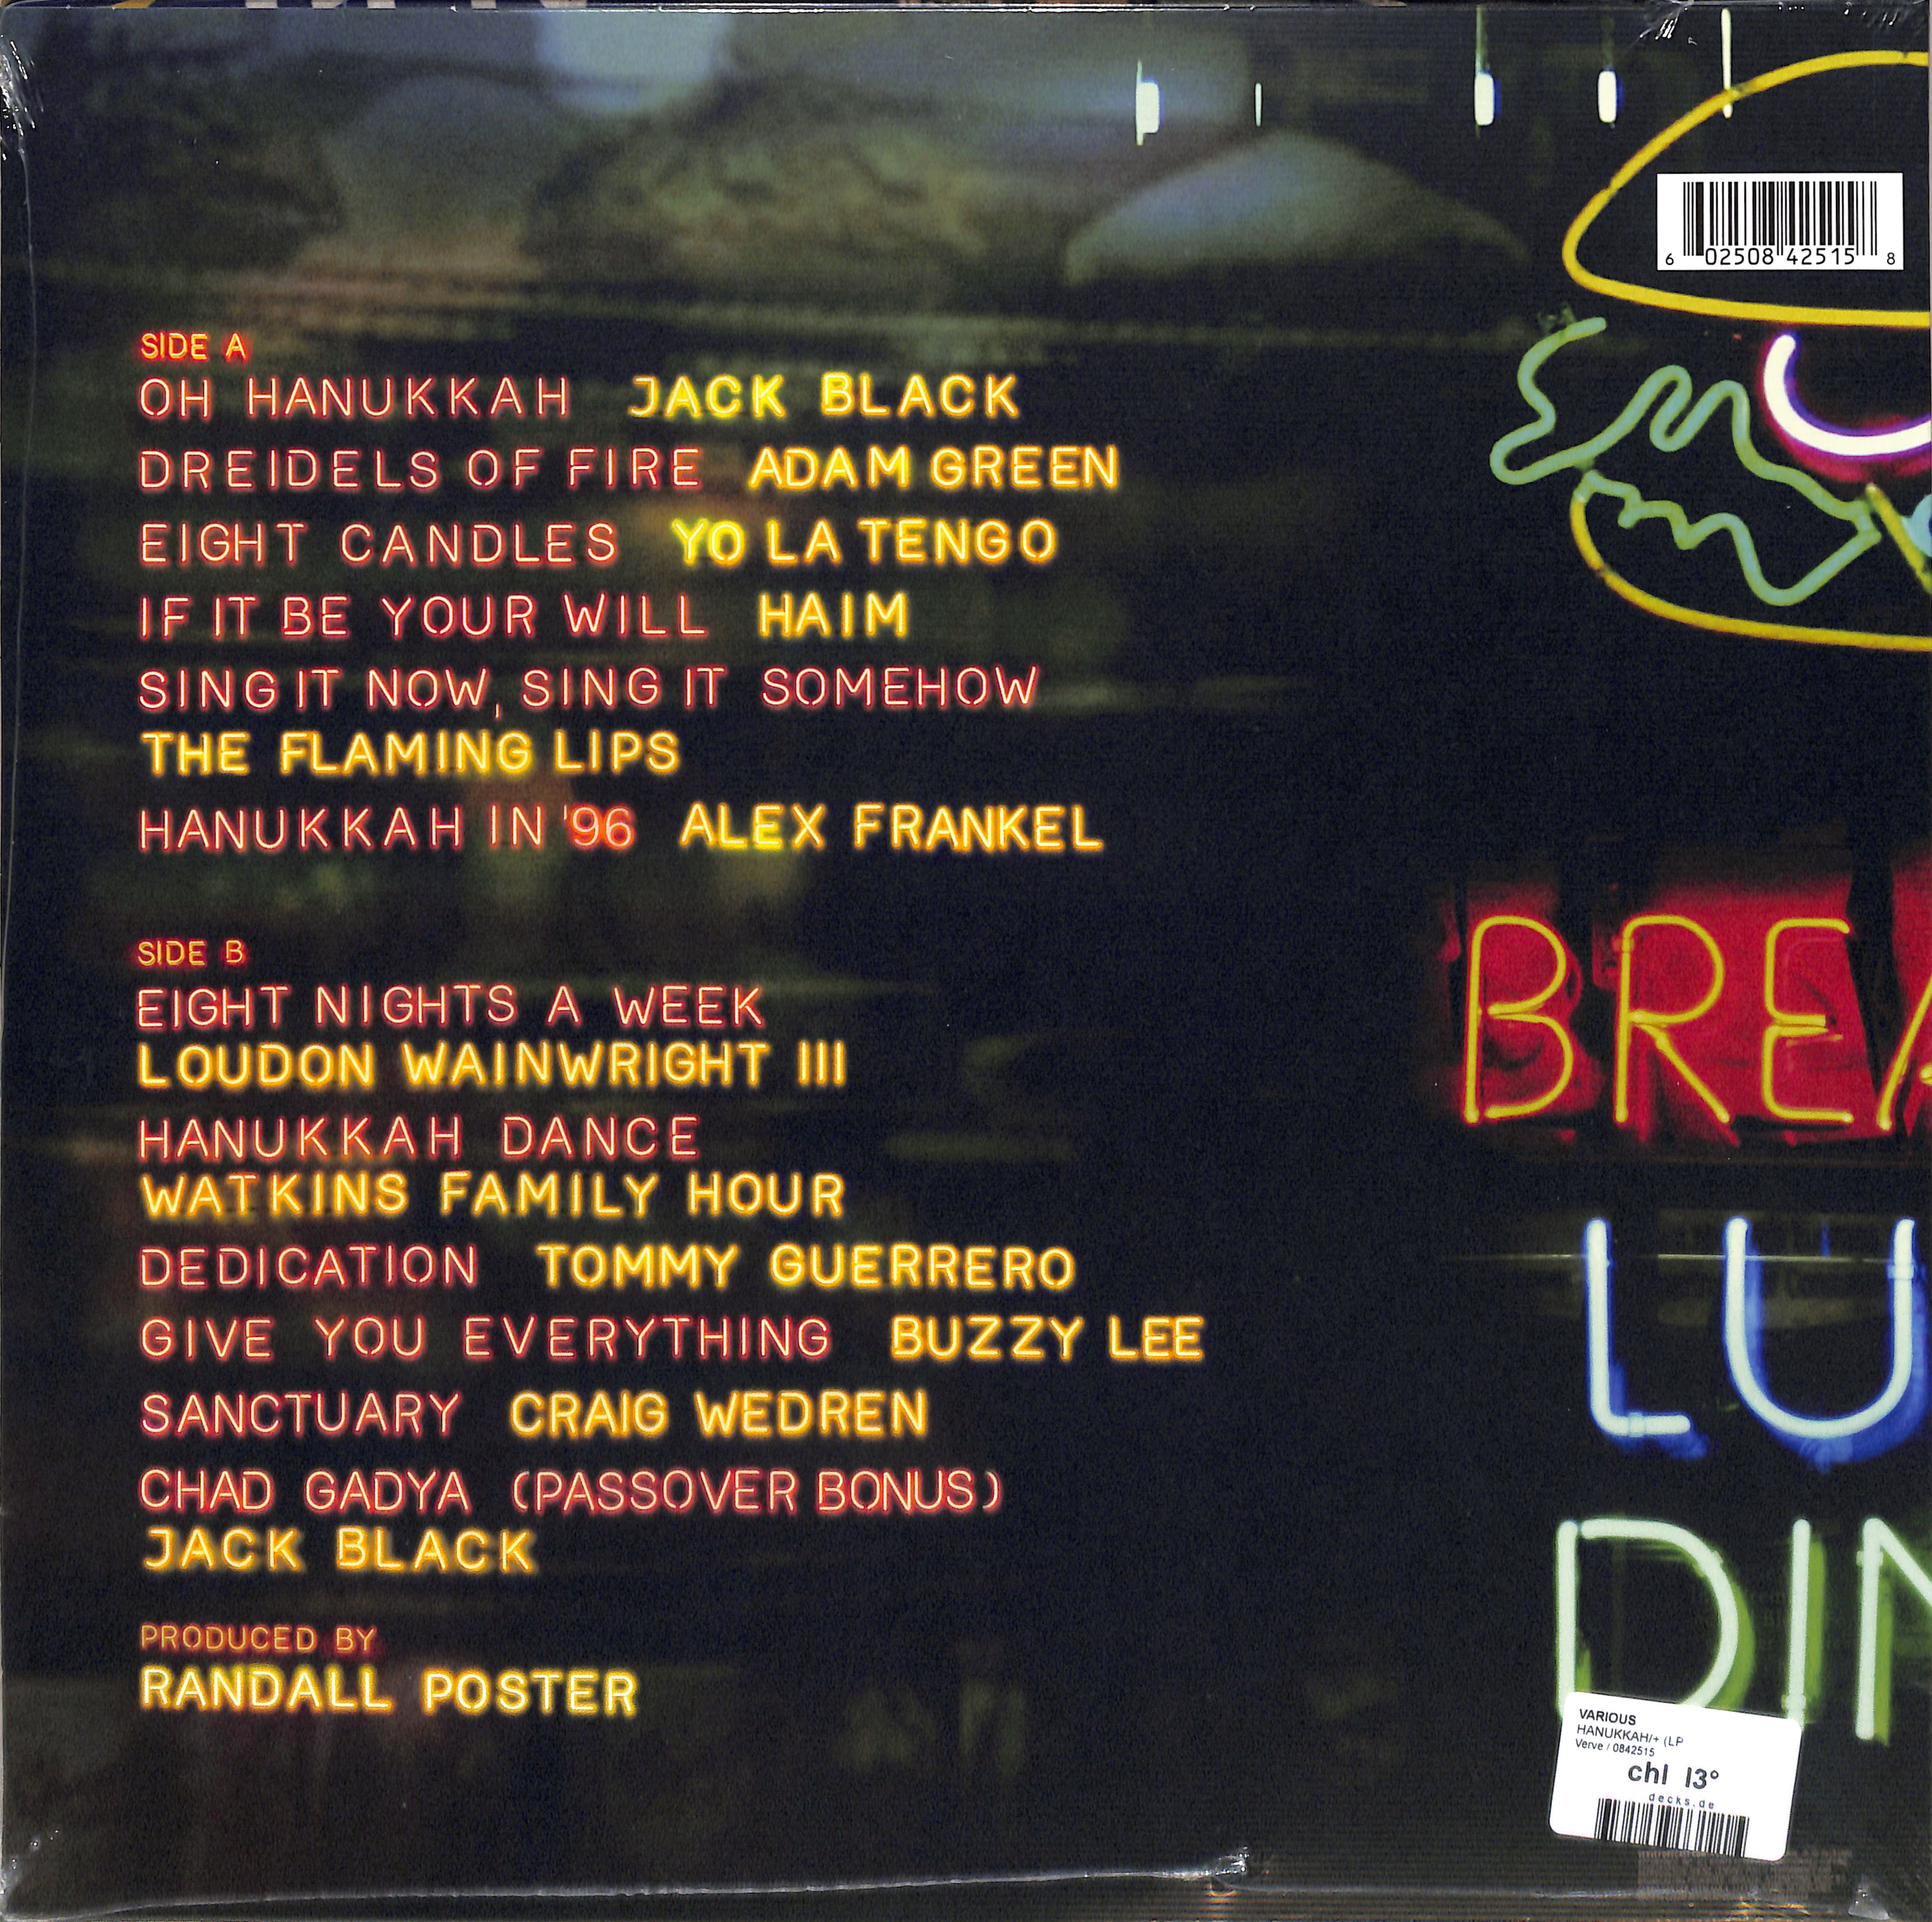 6 02508 42515 8
SIDE A
OH HANUKKAH JACK BLACK
DREIDELS OF FIRE ADAM GREEN
EIGHT CANDLES YO LA TENGO
IF IT BE YOUR WILL HAIM
SING IT NOW, SING IT SOMEHOW
THE FLAMING LIPS
HANUKKAH IN '96 ALEX FRANKEL
SIDE B
EIGHT NIGHTS A WEEK
LOUDON WAINWRIGHT III
HANUKKAH DANCE
WATKINS FAMILY HOUR
DEDICATION TOMMY GUERRERO
GIVE YOU EVERYTHING BUZZY LEE
SANCTUARY CRAIG WEDREN
CHAD GADYA (PASSOVER BONUS)
JACK BLACK
PRODUCED BY
RANDALL POSTER
BREA
LU
DIN
VARIOUS
HANUKKAH/+ (LP
Verve / 0842515
chl 13°
decks.de